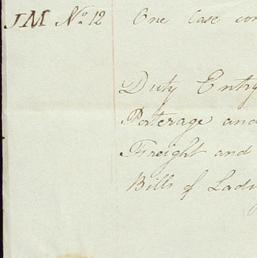 JM No. 12 One Case con
Duty Entry
Porterage and
Freight and
Bills of Ladi